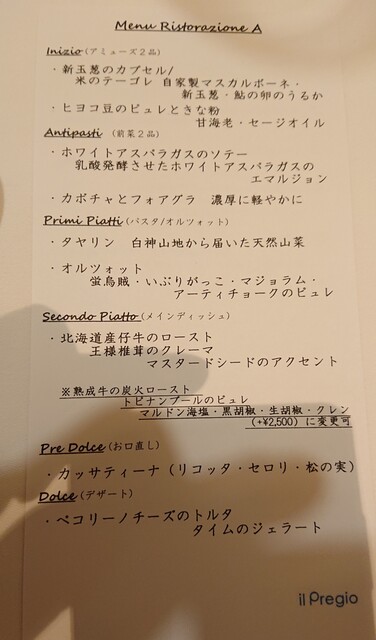 Menu Ristorazione A
Inizio(アミューズ2品)
・新玉葱のカプセル/
米のテーゴレ 自家製マスカルポーネ・
新玉葱・鮎の卵のうるか
・ヒヨコ豆のピュレときな粉
甘海老・セージオイル
Antipasti (前菜2品)
・ホワイトアスパラガスのソテー
乳酸発酵させたホワイトアスパラガスの
エマルジョン
・カボチャとフォアグラ 濃厚に軽やかに
Primi Piatti(パスタ/オルツォット)
・タヤリン 白神山地から届いた天然山菜
・オルツォット
蛍烏賊・いぶりがっこ・マジョラム・
アーティチョークのピュレ
Secondo Piatto(メインディッシュ)
・北海道産仔牛のロースト
王様椎茸のクレーマ
マスタードシードのアクセント
※熟成牛の炭火ロースト
トピナンブールのピュレ
マルドン海塩・黒胡椒・生胡椒・クレン
(+¥2,500) に変更可
Pre Dolce(お口直し)
・カッサティーナ(リコッタ・セロリ・松の実)
Dolce(デザート)
・ペコリーノチーズのトルタ
タイムのジェラート
il Pregio